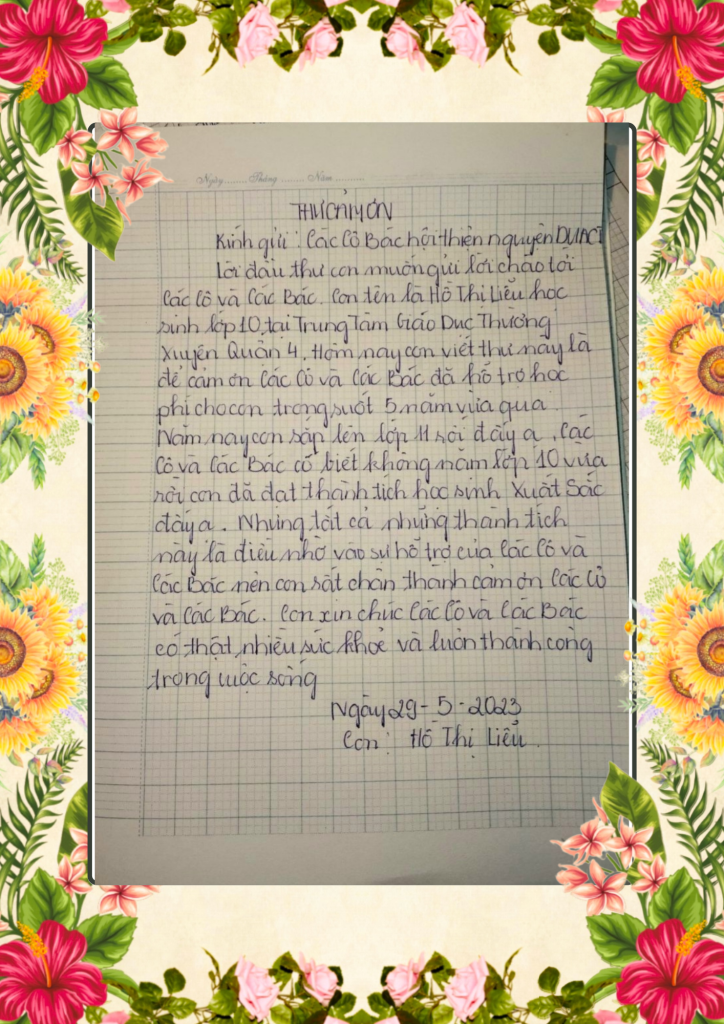 Ngày ........ Tháng ........ Năm ..........
THƯ CẢM ƠN
Kính gửi : Các Cô Bác hội thiện nguyện DUACT
Lời đầu thư con muốn gửi lời chào tới
Các Cô và Các Bác. Con tên là Hồ Thị Liễu học
sinh lớp 10 tại Trung Tâm Giáo Dục Thường
Xuyên Quận 4. Hôm nay con viết thư này là
để cảm ơn Các Cô và Các Bác đã hỗ trợ học
phí cho con trong suốt 5 năm vừa qua.
Năm nay con sắp lên lớp 11 rồi đấy ạ. Các
Cô và Các Bác có biết không năm lớp 10 vừa
rồi con đã đạt thành tích học sinh Xuất Sắc
đấy ạ. Nhưng tất cả những thành tích
này là điều nhờ vào sự hỗ trợ của Các Cô và
Các Bác nên con rất chân thành cảm ơn Các Cô
và Các Bác. Con xin chúc Các Cô và Các Bác
có thật nhiều sức khoẻ và luôn thành công
trong cuộc sống
Ngày 29-5-2023
Con: Hồ Thị Liễu.